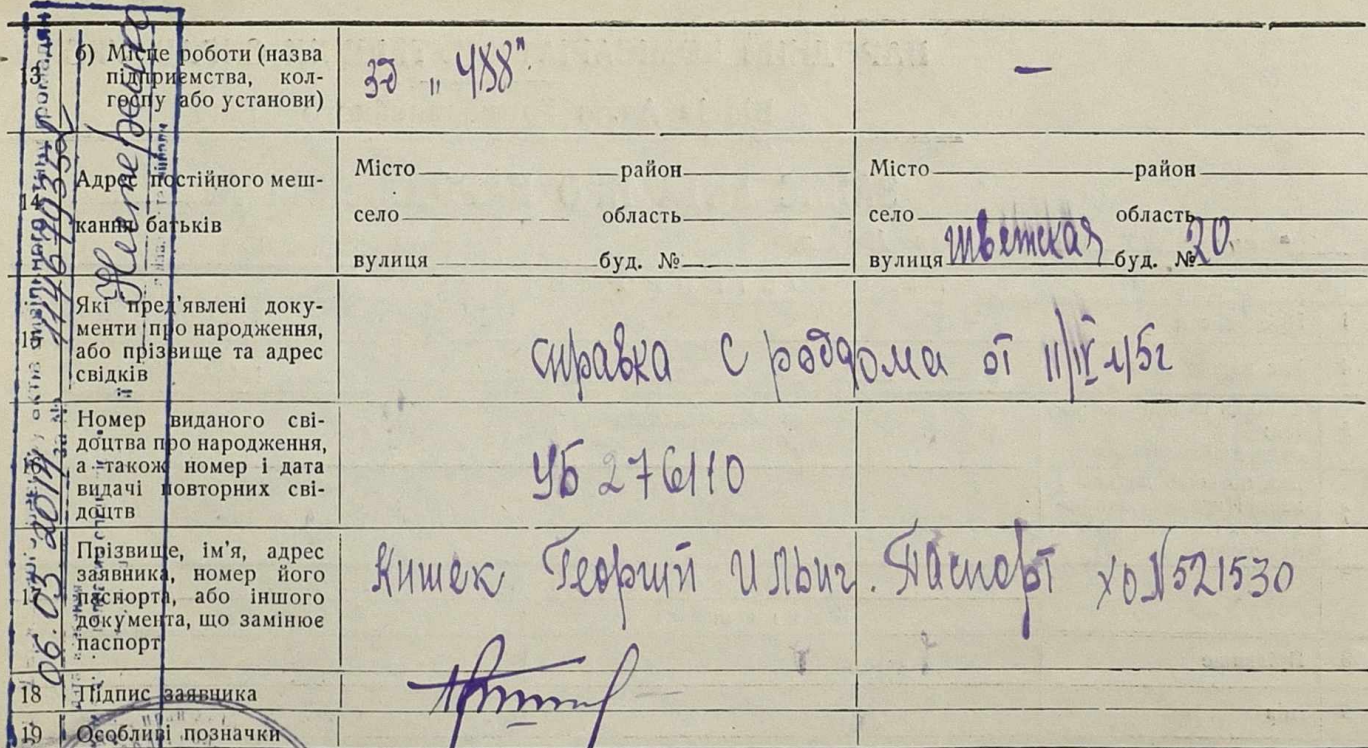 13 б) Місце роботи (назва
підприємства, кол-
госпу або установи)
зд „ 488"
—
14 Адрес постійного меш-
кання батьків
Місто район
село область
вулиця буд. №
Місто район
село область
вулиця буд. № 20
Які пред'явлені доку-
менти про народження,
або прізвище та адрес
свідків
справка с роддома от 11/IV 45г
Номер виданого сві-
доцтва про народження,
а також номер і дата
видачі повторних сві-
доцтв
УБ 276110
17 Прізвище, ім'я, адрес
заявника, номер його
паспорта, або іншого
документа, що замінює
паспорт
Кишек Георгий Ильич. Паспорт ХО № 521530
18 Підпис заявника
19 Особливі позначки
06.03.2014